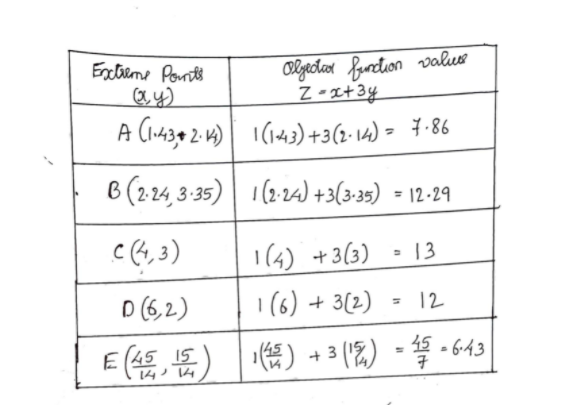 Extreme Points Objective function values
(x,y) Z = x+3y
A (1.43, 2.14) 1(1.43)+3(2.14) = 7.86
B (2.24, 3.35) 1(2.24)+3(3.35) = 12.29
C (4,3) 1(4) +3(3) = 13
D (6,2) 1(6) + 3(2) = 12
E (45/14, 15/14) 1(45/14) + 3(15/14) = 45/7 = 6.43